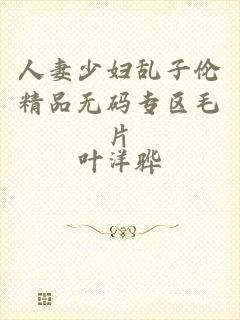 人妻少妇乱子伦
精品无码专区毛
片
叶洋骅